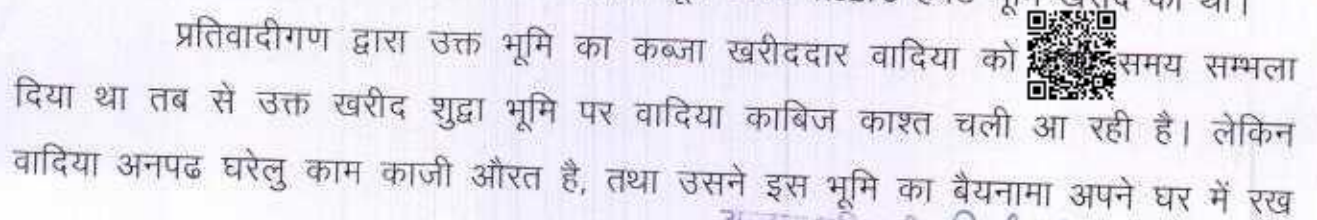 भूमि खरीद की थी।
प्रतिवादीगण द्वारा उक्त भूमि का कब्जा खरीददार वादिया को समय सम्भला
दिया था तब से उक्त खरीद शुद्वा भूमि पर वादिया काबिज काश्त चली आ रही है। लेकिन
वादिया अनपढ घरेलु काम काजी औरत है, तथा उसने इस भूमि का बैयनामा अपने घर में रख